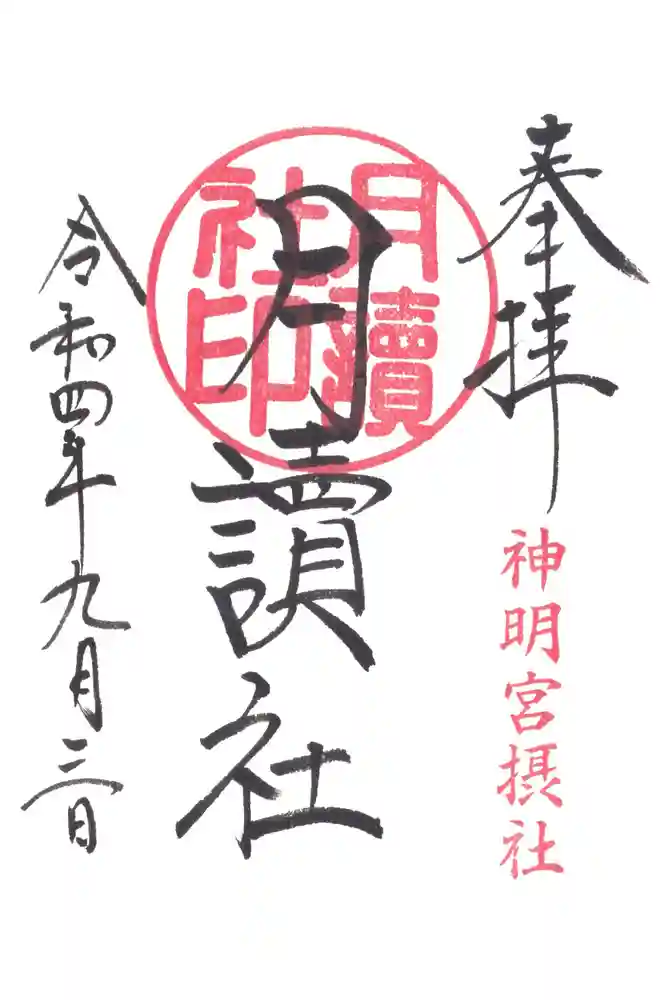 奉拝
神明宮摂社
月讀社印
月讀社
令和四年九月三日